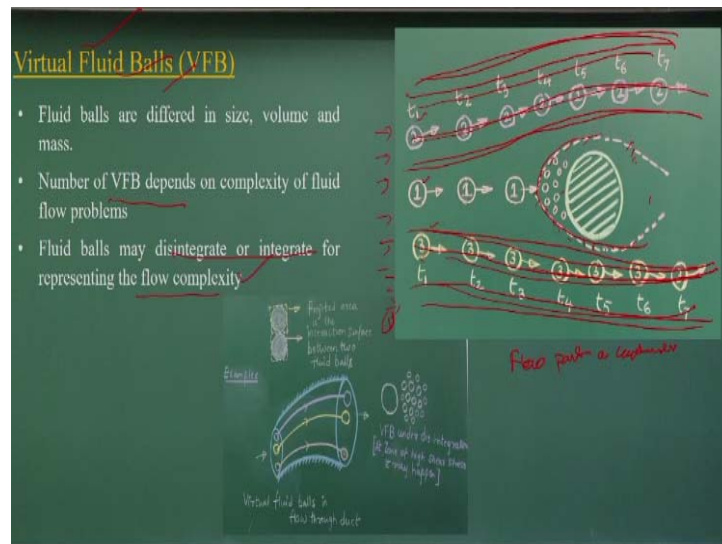 Virtual Fluid Balls (VFB)
• Fluid balls are differed in size, volume and
mass.
• Number of VFB depends on complexity of fluid
flow problems
• Fluid balls may disintegrate or integrate for
representing the flow complexity
t₁ t₂ t₃ t₄ t₅ t₆ t₇
2 2 2 2 2 2
1 1 1
3 3 3 3 3 3
t₁ t₂ t₃ t₄ t₅ t₆ t₇
Flow
area
is the
interaction surface
between two
fluid balls
Examples
VFB under
[at zone of high shear stress
it may happen]
Virtual fluid balls in
flow through duct